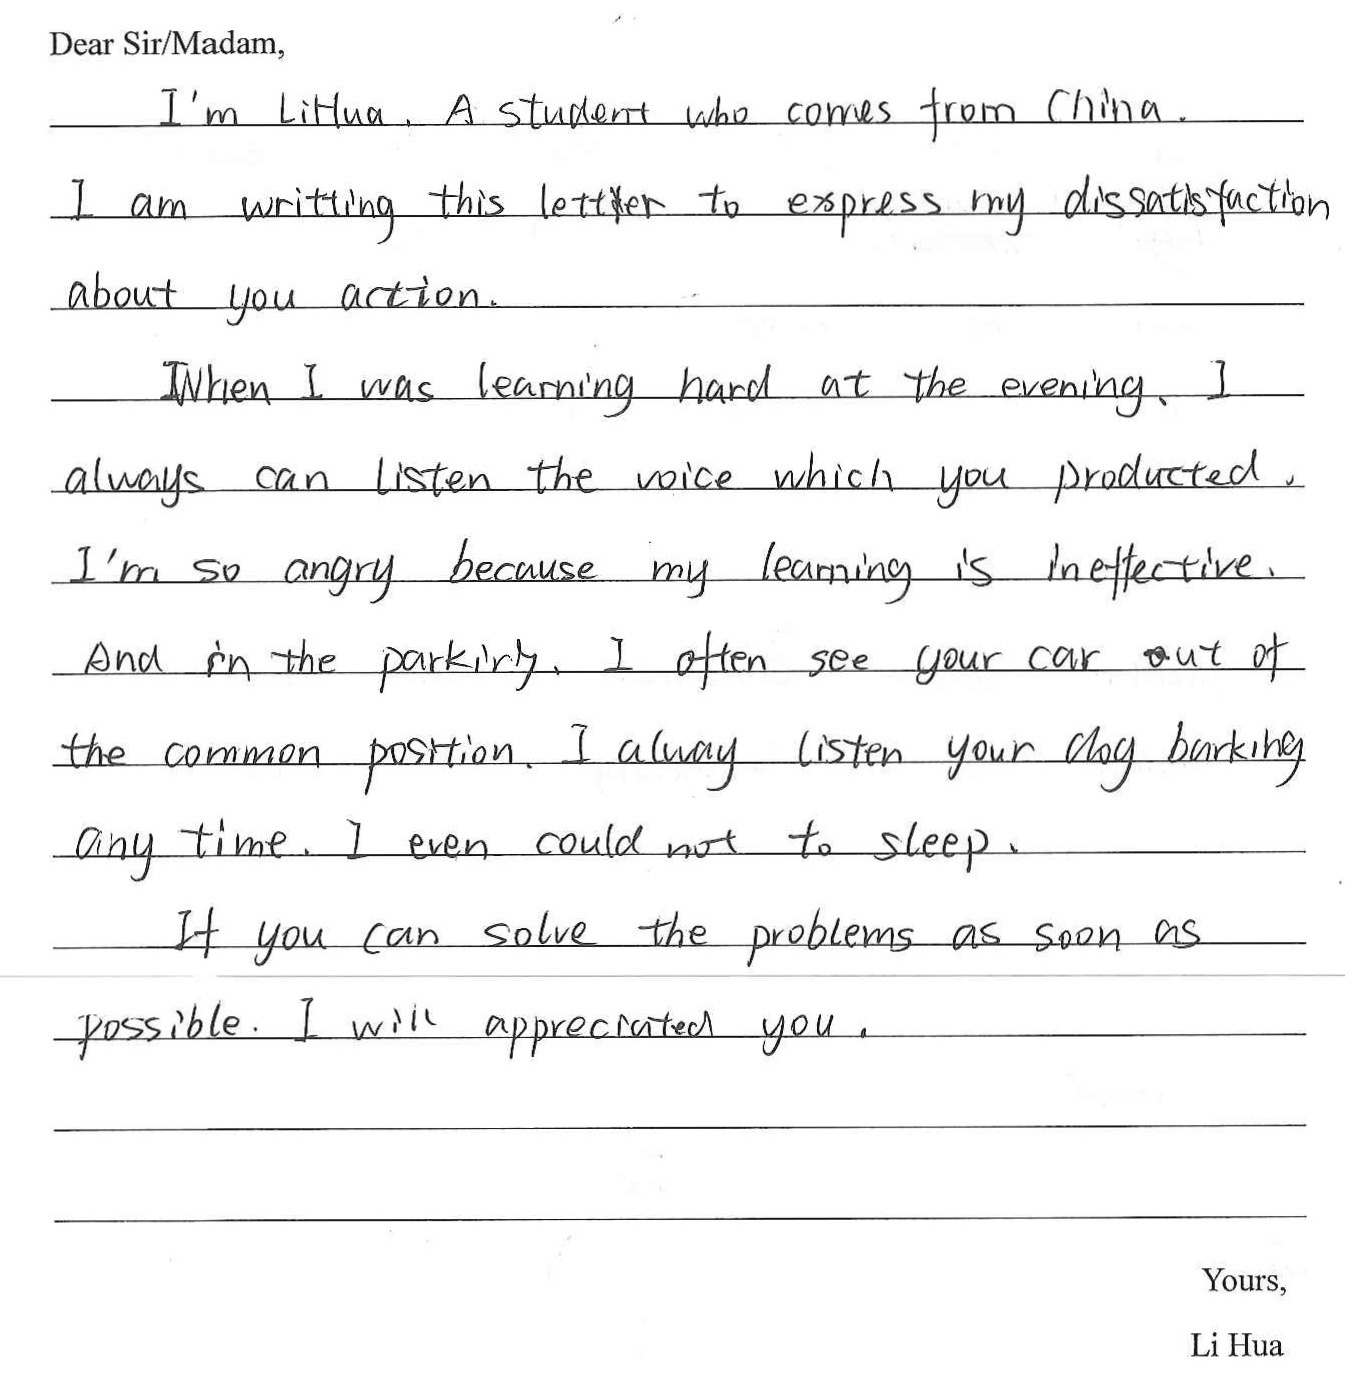 Dear Sir/Madam,
I'm LiHua. A student who comes from China.
I am writting this letter to express my dissatisfaction
about you action.
When I was learning hard at the evening, I
always can listen the voice which you producted.
I'm so angry because my learning is ineffective.
And in the parking, I often see your car out of
the common position. I alway listen your dog barking
any time. I even could not to sleep.
If you can solve the problems as soon as
possible. I will appreciated you.
Yours,
Li Hua